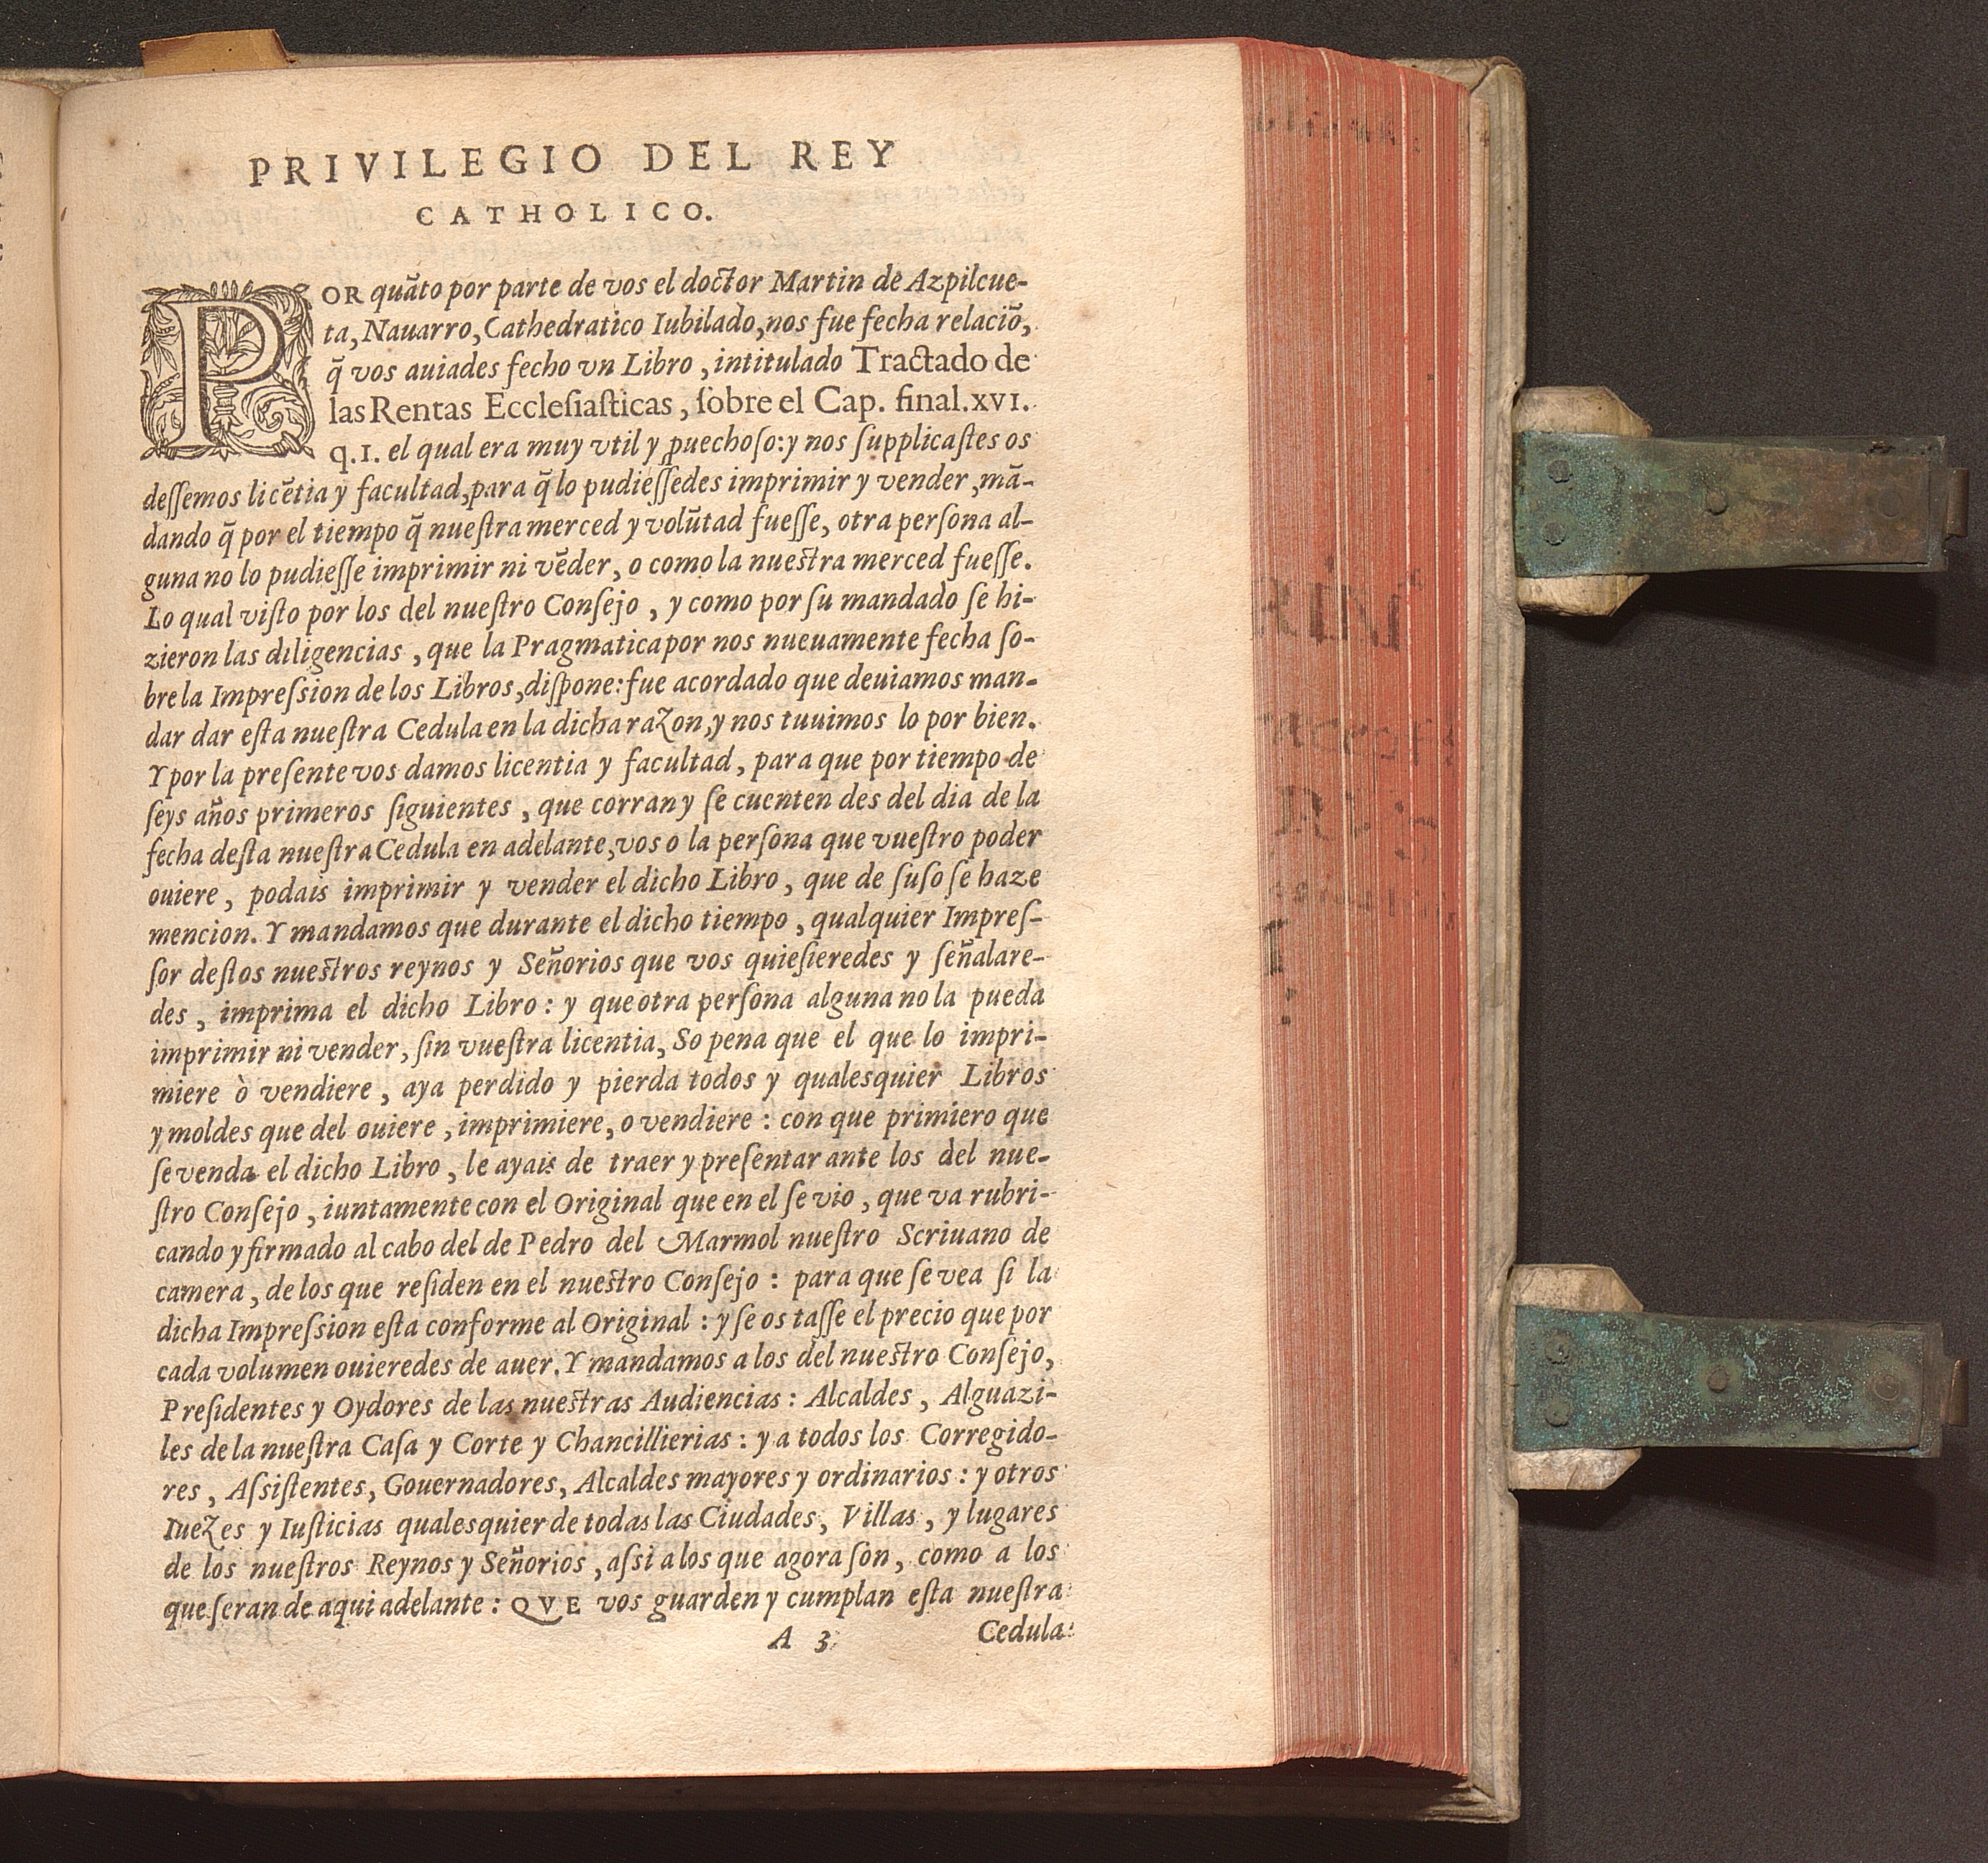 PRIVILEGIO DEL REY
CATHOLICO.
POR quãto por parte de vos el doctor Martin de Azpilcue-
ta, Nauarro, Cathedratico Iubilado, nos fue fecha relaciõ,
q̃ vos auiades fecho vn Libro, intitulado Tractado de
las Rentas Eccleſiaſticas, ſobre el Cap. final. XVI.
q. I. el qual era muy vtil y ꝓuechoſo: y nos ſupplicaſtes os
deſſemos licẽtia y facultad, para q̃ lo pudieſſedes imprimir y vender, mã-
dando q̃ por el tiempo q̃ nueſtra merced y volũtad fueſſe, otra perſona al-
guna no lo pudieſſe imprimir ni vẽder, o como la nueſtra merced fueſſe.
Lo qual viſto por los del nueſtro Conſejo, y como por ſu mandado ſe hi-
zieron las diligencias, que la Pragmatica por nos nueuamente fecha ſo-
bre la Impreſsion de los Libros, diſpone: fue acordado que deuiamos man-
dar dar eſta nueſtra Cedula en la dicha razon, y nos tuuimos lo por bien.
Y por la preſente vos damos licentia y facultad, para que por tiempo de
ſeys años primeros ſiguientes, que corran y ſe cuenten des del dia de la
fecha deſta nueſtra Cedula en adelante, vos o la perſona que vueſtro poder
ouiere, podais imprimir y vender el dicho Libro, que de ſuſo ſe haze
mencion. Y mandamos que durante el dicho tiempo, qualquier Impreſ-
ſor deſtos nueſtros reynos y Señorios que vos quieſieredes y ſeñalare-
des, imprima el dicho Libro: y que otra perſona alguna no la pueda
imprimir ni vender, ſin vueſtra licentia, So pena que el que lo impri-
miere ò vendiere, aya perdido y pierda todos y qualesquier Libros
y moldes que del ouiere, imprimiere, o vendiere: con que primiero que
ſe venda el dicho Libro, le ayais de traer y preſentar ante los del nue-
ſtro Conſejo, iuntamente con el Original que en el ſe vio, que va rubri-
cando y firmado al cabo del de Pedro del Marmol nueſtro Scriuano de
camera, de los que reſiden en el nueſtro Conſejo: para que ſe vea ſi la
dicha Impreſsion eſta conforme al Original: y ſe os taſſe el precio que por
cada volumen ouieredes de auer. Y mandamos a los del nueſtro Conſejo,
Preſidentes y Oydores de las nueſtras Audiencias: Alcaldes, Alguazi-
les de la nueſtra Caſa y Corte y Chancillierias: y a todos los Corregido-
res, Aſsiſtentes, Gouernadores, Alcaldes mayores y ordinarios: y otros
Iuezes y Iuſticias qualesquier de todas las Ciudades, Villas, y lugares
de los nueſtros Reynos y Señorios, aſsi a los que agora ſon, como a los
que ſeran de aqui adelante: QVE vos guarden y cumplan eſta nueſtra
A 3 Cedula